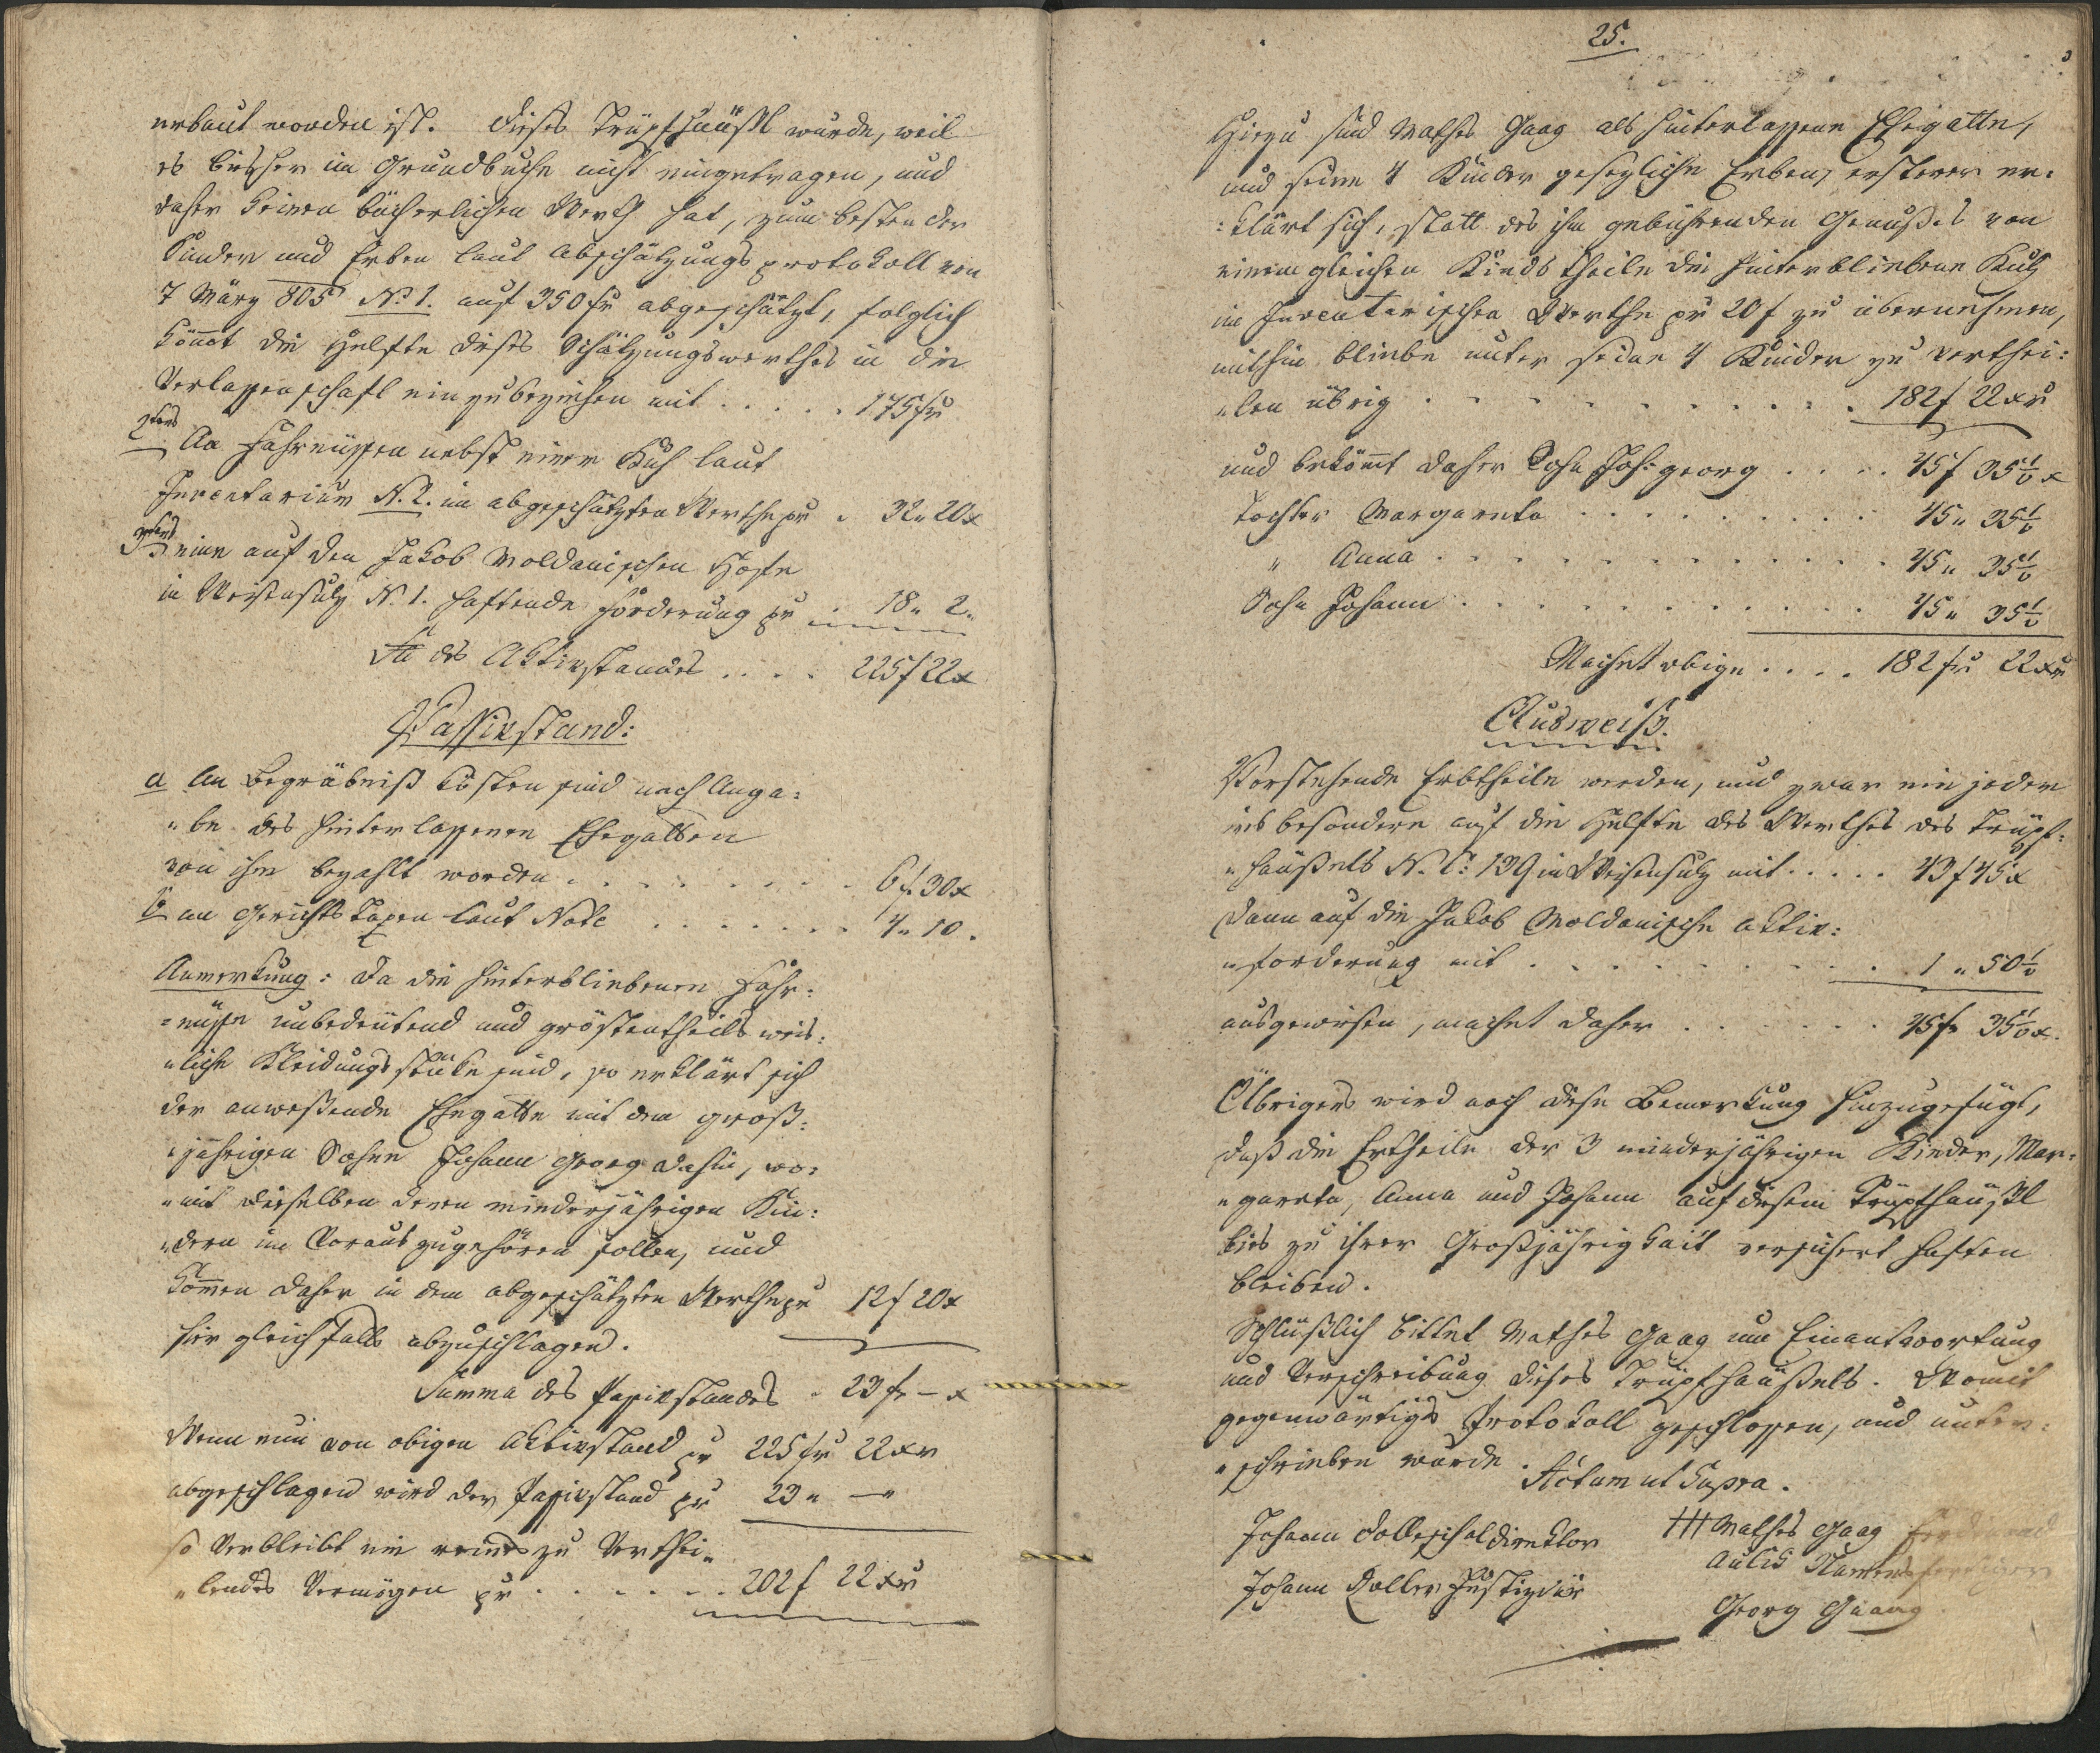 erbaut worden ist. Dieses Trüpfhäußl wurde, weil
es bisher im Grundbuche nicht eingetragen, und
daher keinen bücherlichen Werth hat, zum besten der
Kinder und Erben laut Abschätzungsprotokoll von
7 März 805 No 1. auf 350 fr abgeschätzt, folglich
kömmt die Helfte dieses Schätzungswerthes in die
Verlassenschaft einzubeziehen mit . . . . . 175 fr
2tens An Fahrnissen nebst einer Kuh laut
Inventarium N. 2. im abgeschätzten Werthe pr . 32 " 20 x
3tens eine auf den Jakob Woldanischen Hofe
in Weisensulz N. 1. haftende Forderung pr . 18 " 2 "
Sa des Aktivstandes . . . . 225 f 22 x
Passivstand:
a An Begräbniß kösten sind nach Anga:
"be des hinterlassenen Ehegatten
von ihm bezahlt worden . . . . . . . . 6 f 30 x
b an Gerichts Taxen laut Note . . . . . . . 4 " 10 .
Anmerkung: Da die hinterbliebenen Fahr:
"nisse unbedeutend und gröstentheils weib:
"liche Kleidungs stüke sind, so erklärt sich
der anweßende Ehegatte mit dem groß:
"jährigen Sohne Johann Georg dahin, wo:
"mit dieselben denen minderjährigen Kin:
"dern im Voraus zugehören sollen, und
kommen daher in dem abgeschätzten Werthe pr 12 f 20 x
hier gleichfalls abzuschlagen.
Summa des Passivstandes . 23 fr – x
Wenn nun von obigen Aktivstand pr 225 fr 22 xr
abgeschlagen wird der Passivstand pr 23 " — "
so Verbleibt ein reines zu Verthei:
"lendes Vermögen pr . . . . . . . 202 f 22 xr
25.
Hiezu sind Mathes Gaag als hinterlassene Ehegatte,
und seine 4 Kinder gesezliche Erben, ersterer er:
:klärt sich, statt des ihm gebührenden Genußes von
einem gleichen Kindstheile die hinterbliebene Kuh
im Inventarischen Werthe pr 20 f zu übernehmen,
mithin bliebe unter seine 4 Kinder zu verthei:
"len übrig . . . . . . . . . . . 182 f 22 xr
und bekömmt daher Sohn Joh: georg . . . . 45 f 35 1/2 x
Tochter Margareta . . . . . . . . . 45 " 35 1/2
" Anna . . . . . . . . . . . . 45 " 35 1/2
Sohn Johann . . . . . . . . . . . 45 " 35 1/2
Machet obige . . . . 182 fr 22 xr
Ausweiß.
Vorstehende Erbtheile werden, und zwar ein jeder
ins besondere auf die Helfte des Werthes des Trüpf:
"häußels N. C: 139 in Weisensulz mit . . . . . 43 f 45 x
dann auf die Jakob Woldanische aktiv:
"forderung mit . . . . . . . . . . 1 " 50 1/2
ausgewiesen, machet daher . . . . . . 45 fr 35 1/2 x.
Übrigens wird noch diese Bemerkung hinzugefügt,
daß die Ertheile der 3 minderjährigen Kinder, Mar:
"gareta, Anna und Johann auf diesem Trüpfhäußl
bies zu ihrer Großjährigkait versichert haften
bleiben.
Schlüßlich bittet Mathes Gaag um Einantwortung
und Verschreibung dieses Trüpfhäußels. Womit
gegenwärtiges Protokoll geschlossen, und unter:
"schrieben wurde.
Actum ut Supra.
Johann Dolleschal Direktor
+++ Mathes Gaag
Johann Doller Justizdir
Namens
Georg Gaang